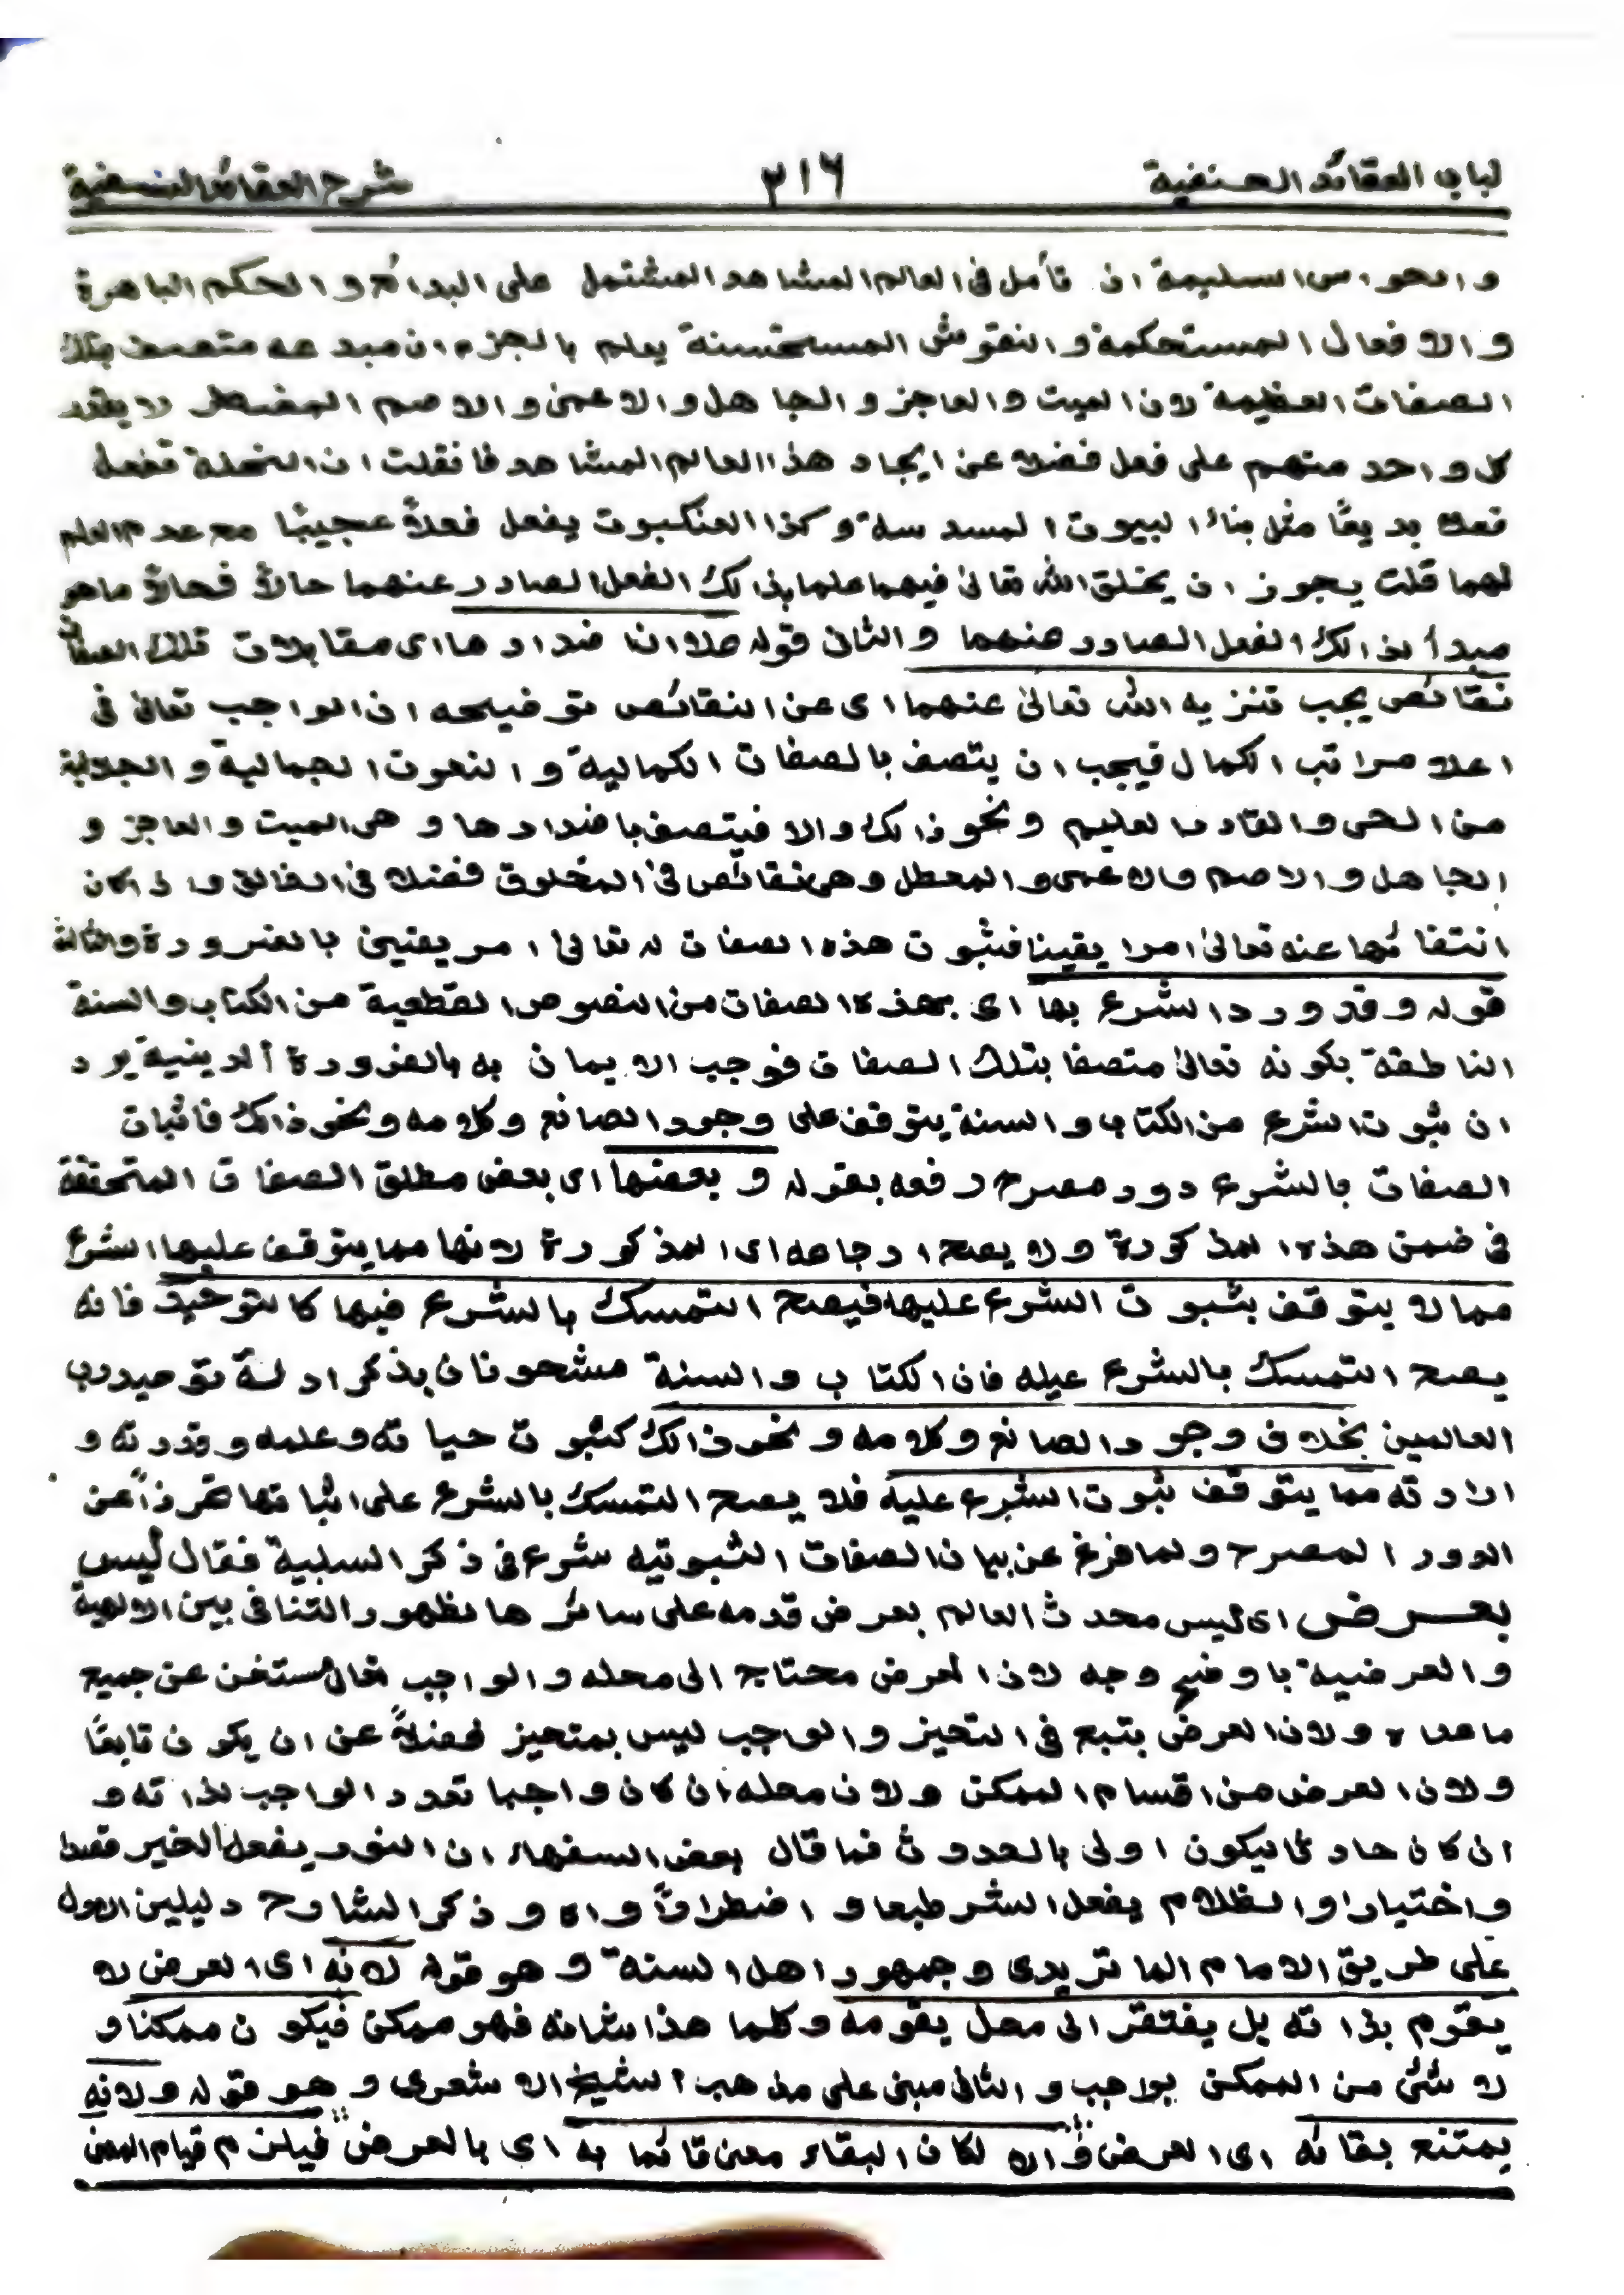 لباب العقائد الحنفية ٣١٦ شرح العقائد النسفية
والحواس السليمة ان تأمل فى العالم المشاهد المشتمل على البدائع والحكم الباهرة
والافعال المستحكمة والنقوش المستحسنة يعلم بالجزم ان مبدعه متصف بتلك
الصفات العظيمة لان الميت والعاجز والجاهل والاعمى والاصم المضطر لا يقدر
كل واحد منهم على فعل فضلا عن ايجاد هذا العالم المشاهد فانقلت ان النحلة تفعل
فعلا بديعًا مثل بناء البيوت المسدسة وكذا العنكبوت يفعل فعلاً عجيبًا مع عدم العلم
لهما قلت يجوز ان يخلق الله تعالىٰ فيهما علما بذالك الفعل الصادر عنهما حالاً فحالاً ماهو
مبدأ لذالك الفعل الصادر عنهما والثانى قوله علا ان اضدادها اى مقابلات تلك الصفات
نقائص يجب تنزيه الله تعالىٰ عنهما اى عن النقائص توضيحه ان الواجب تعالىٰ فى
اعلا مراتب الكمال فيجب ان يتصف بالصفات الكمالية والنعوت الجمالية والجلالية
من الحى والقادر العليم ونحو ذالك والا فيتصف باضدادها وهى الميت والعاجز و
الجاهل والاصم والاعمى والمعطل وهى نقائص فى المخلوق فضلا فى الخالق واذا كان
انتفائها عنه تعالىٰ امرا يقينا فثبوت هذه الصفات له تعالىٰ امر يقينى بالضرورة والثالث
قوله وقد ورد الشرع بها اى بهذه الصفات من النصوص القطعية من الكتاب والسنة
الناطقة بكونه تعالىٰ متصفا بتلك الصفات فوجب الايمان به بالضرورة الدينية يرد
ان ثبوت الشرع من الكتاب والسنة يتوقف على وجود الصانع وكلامه ونحو ذالك فاثبات
الصفات بالشرع دور مصرح دفعه بقوله وبعضها اى بعض مطلق الصفات المتحققة
فى ضمن هذه المذكورة ولا يصح ارجاعه اى المذكورة لانها مما يتوقف عليها الشرع
مما لا يتوقف بثبوت الشرع عليها فيصح التمسك بالشرع فيها كالتوحيد فانه
يصح التمسك بالشرع عيله فان الكتاب والسنة مشحونان بذكر ادلة توحيد رب
العالمين بخلاف وجود الصانع وكلامه ونحو ذالك كثبوت حياته وعلمه وقدرته و
ارادته مما يتوقف ثبوت الشرع عليه فلا يصح التمسك بالشرع على اثباتها تحرزاً عن
الدور المصرح ولما فرغ عن بيان الصفات الثبوتيه شرع فى ذكر السلبية فقال ليس
بعرض اى ليس محدث العالم بعرض قدمه على سائرها لظهور التنافى بين الالوهية
والعرضية باوضح وجه لان العرض محتاج الى محله والواجب مستغن عن جميع
ماعداه ولان العرض يتبع فى التحيز والواجب ليس بمتحيز فضلاً عن ان يكون تابعًا
ولان العرض من اقسام الممكن ولان محله ان كان واجبا تعدد الواجب لذاته و
ان كان حادثا فيكون اولى بالحدوث فما قال بعض السفهاء ان النور يفعل الخير فقط
واختيارا والظلام يفعل الشر طبعا و اضطراراً واه وذكر الشارح دليلين الاول
على طريق الامام الماتريدى وجمهور اهل السنة وهو قوله لانه اى العرض لا
يقوم بذاته بل يفتقر الى محل يقومه وكلما هذا شانه فهو ممكن فيكون ممكنا و
لا شئ من الممكن بواجب والثانى مبنى على مذهب الشيخ الاشعرى وهو قوله ولانه
يمتنع بقائه اى العرض والا لكان البقاء معنى قائما به اى بالعرض فيلزم قيام المعنى